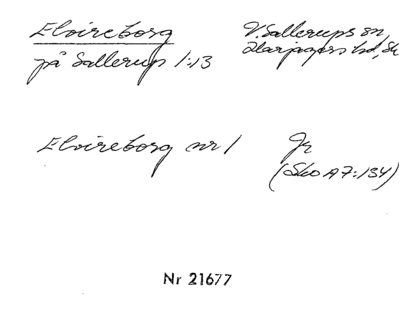 Elvireborg
på Sallerup 1:13
V. Sallerups sn,
Harjagers hd, Sk
Elvireborg nr 1
Jr
(Sko A7:134)
Nr 21677